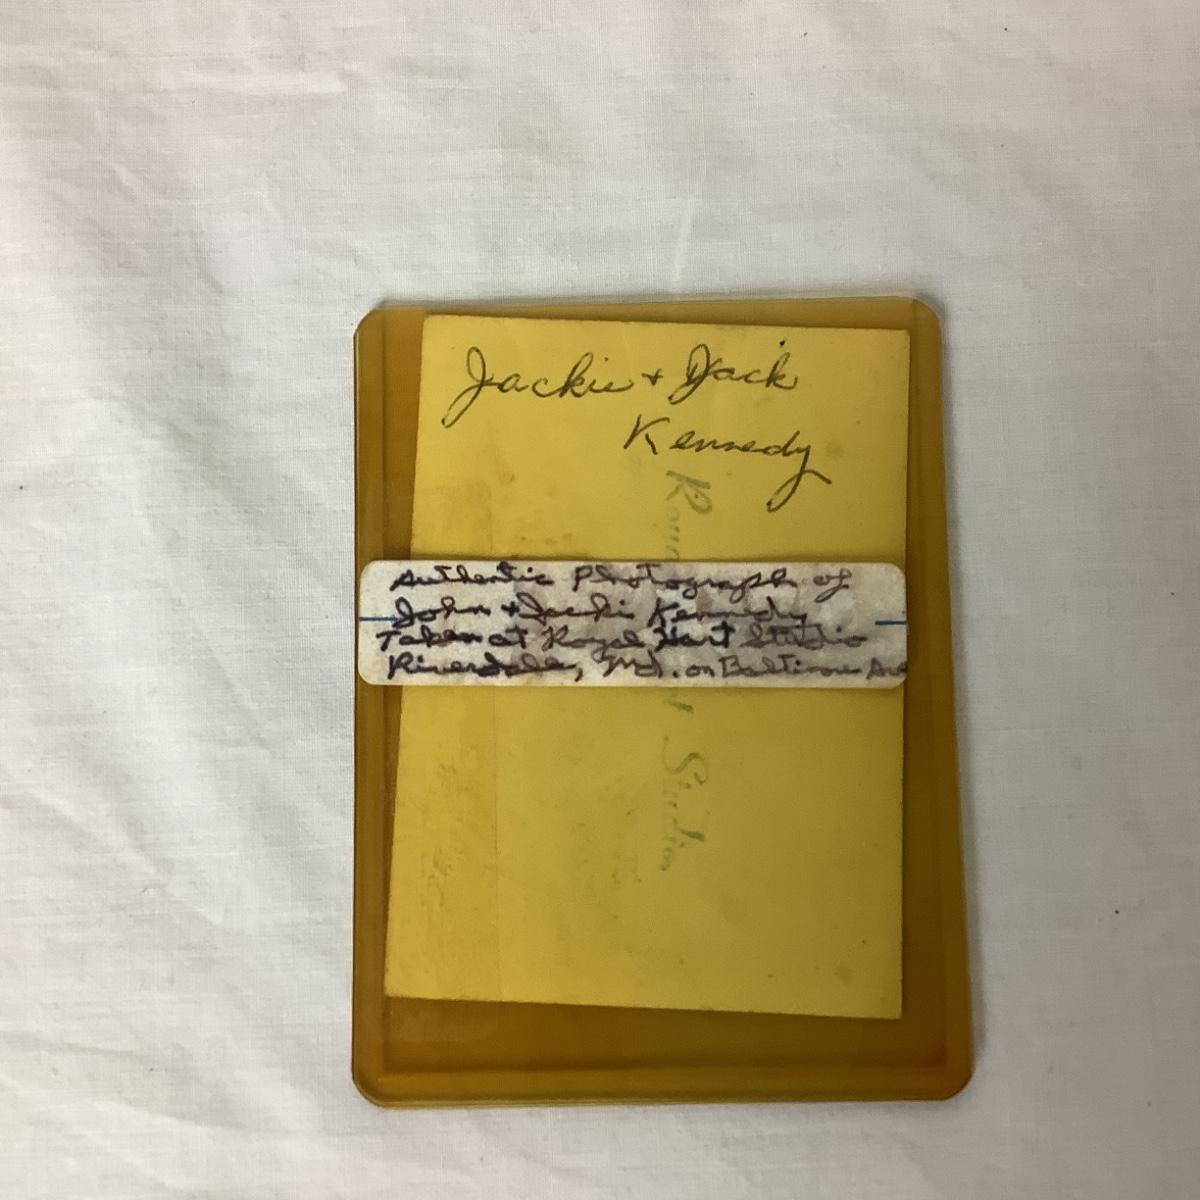 Jackie + Jack
Kennedy
Authentic Photograph of
John + Jacki Kennedy
Taken at Royal Hart Studio
Riverdale, Md. on Baltimore Ave
Studio